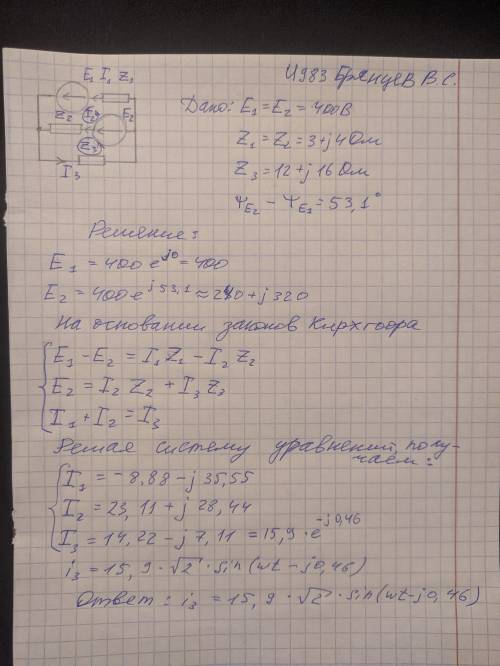 Ч983 Брянцев В.С.
E₁ I₁ Z₁
Z₂ I₂ E₂
Z₃
I₃
Дано: E₁ = E₂ = 400В
Z₁ = Z₂ = 3+j4 Ом
Z₃ = 12+j16 Ом
Ψ_E₂ − Ψ_E₁ = 53,1°
Решение:
E₁ = 400 e^j0 = 400
E₂ = 400 e^j53,1 ≈ 240+j320
На основании законов Кирхгофа
E₁ − E₂ = I₁ Z₁ − I₂ Z₂
E₂ = I₂ Z₂ + I₃ Z₃
I₁ + I₂ = I₃
Решая систему уравнений, полу-
чаем:
I₁ = −8,88 − j 35,55
I₂ = 23,11 + j 28,44
I₃ = 14,22 − j 7,11 = 15,9 · e^−j0,46
i₃ = 15,9 · √2 · sin(wt − j0,46)
Ответ: i₃ = 15,9 · √2 · sin(wt−j0,46)